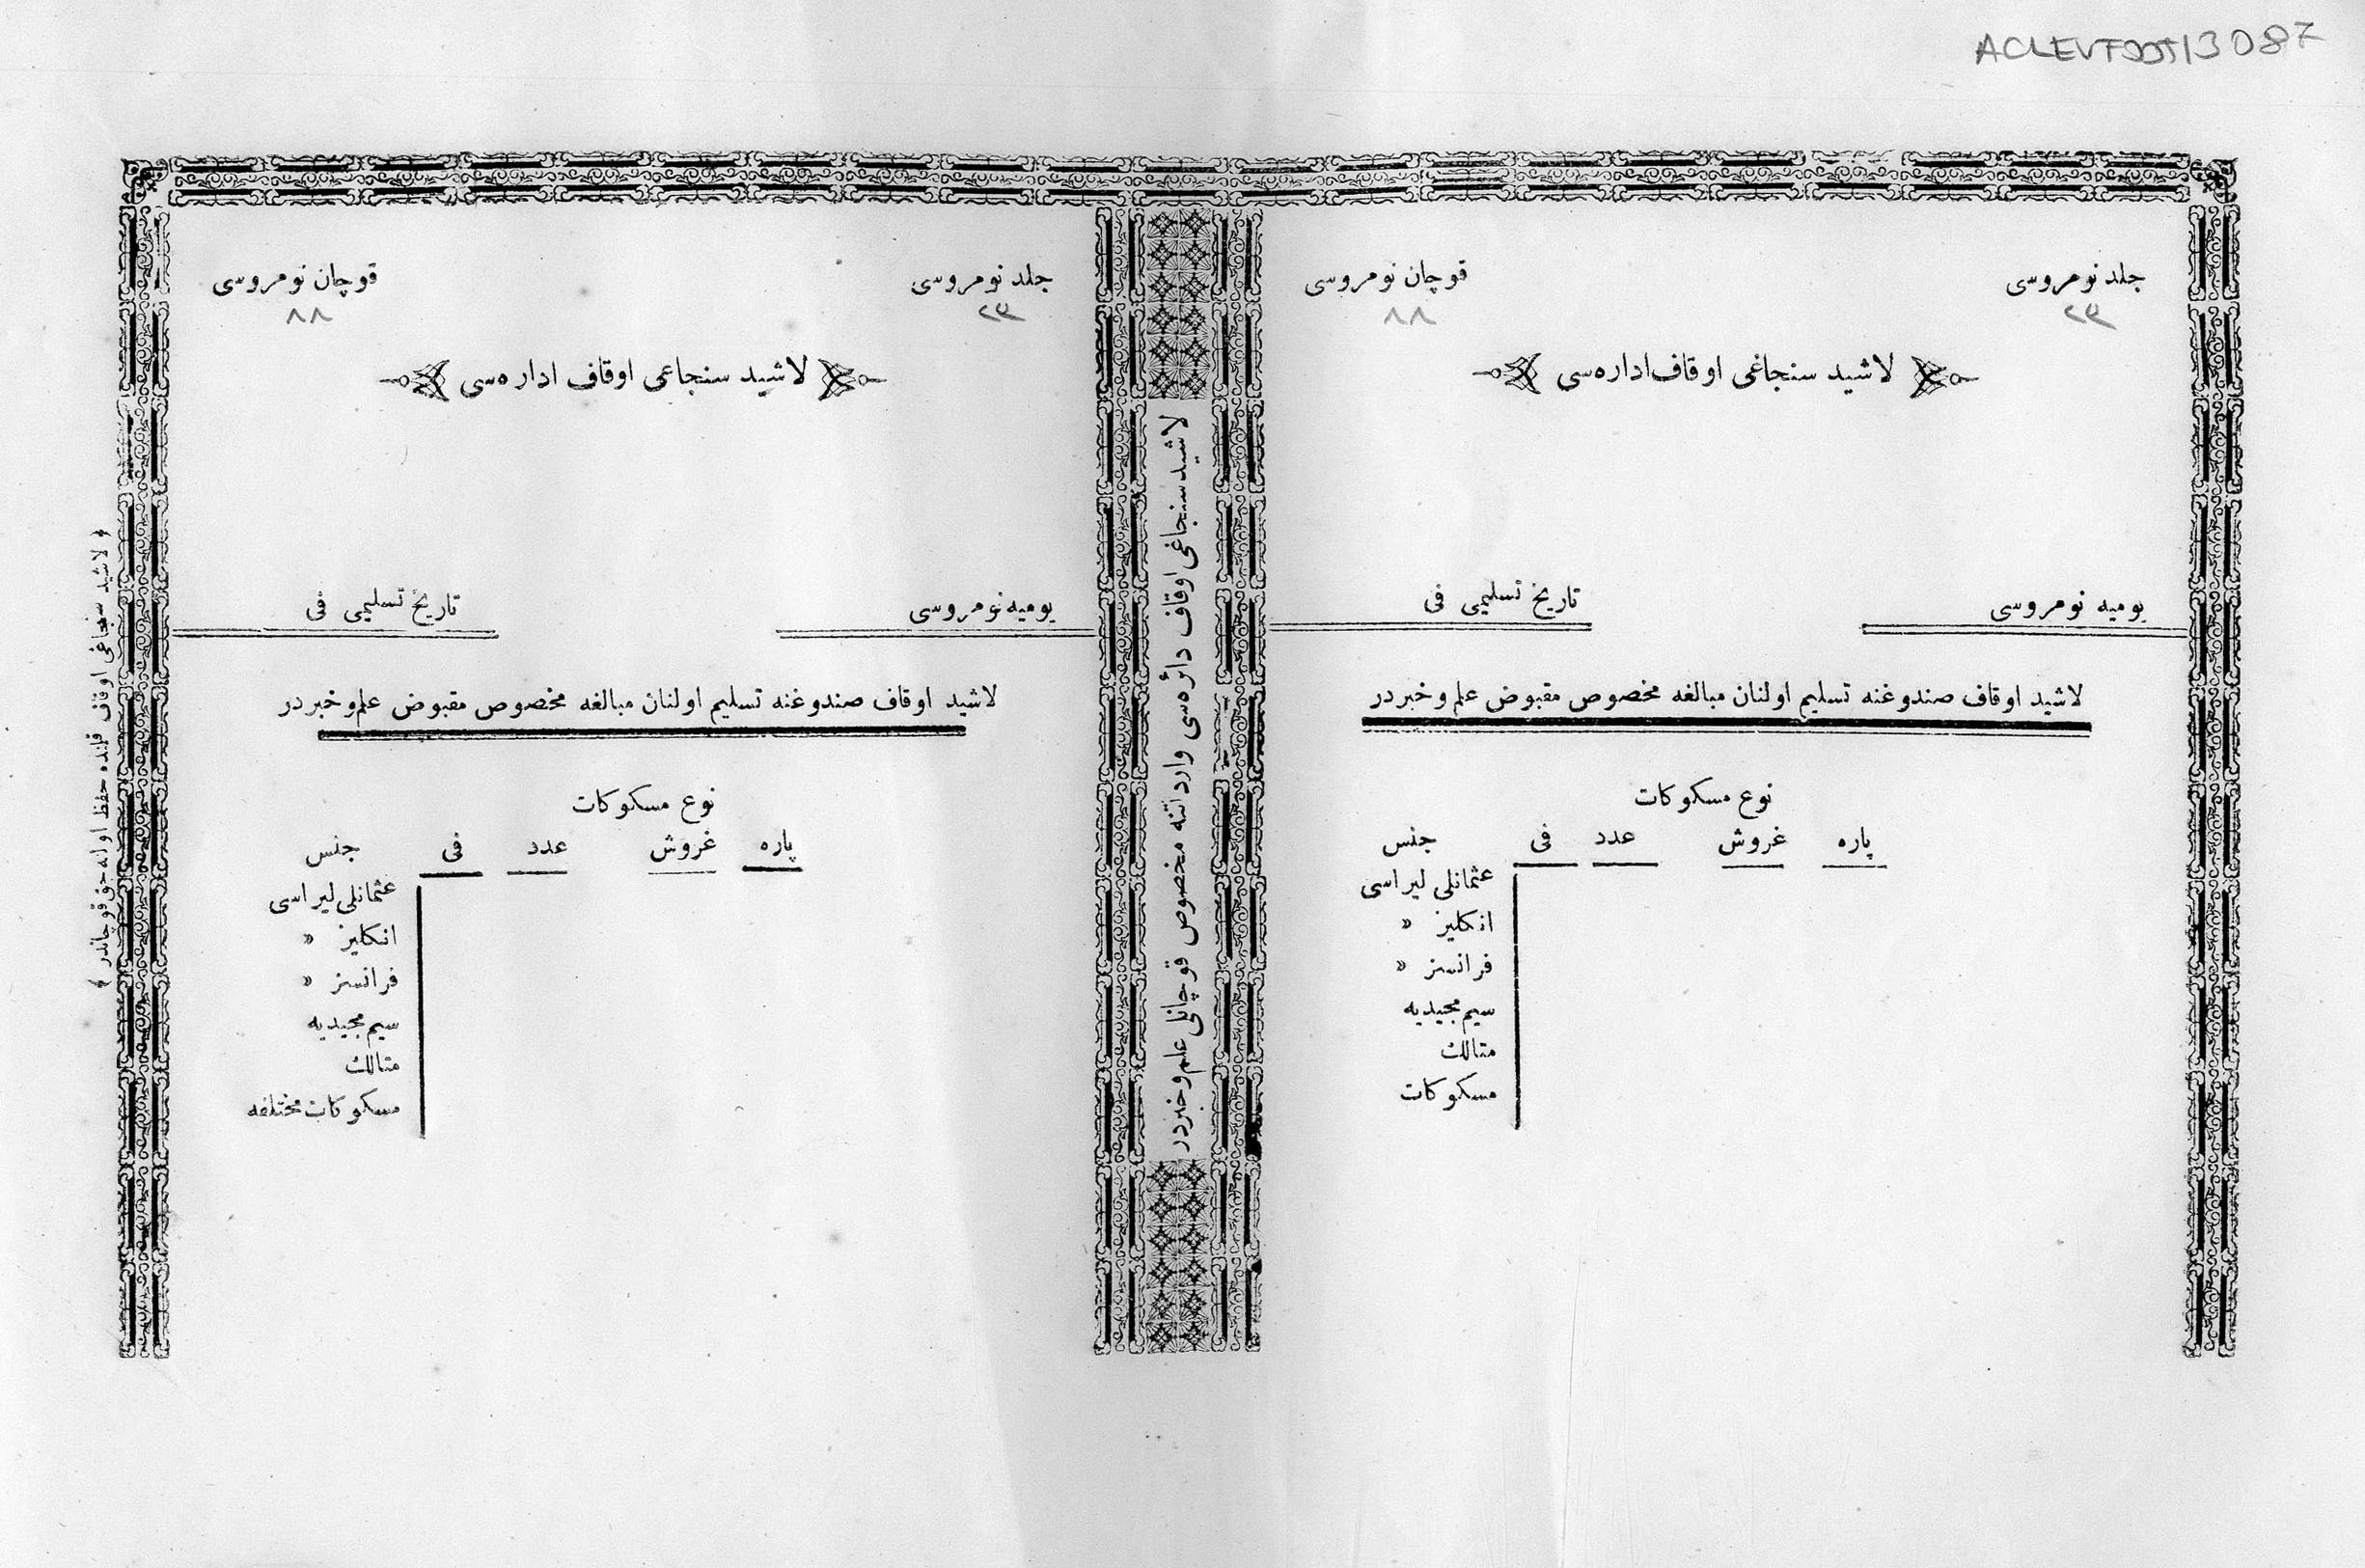 جلد نومروسی
قوچان نومروسی
٨٨
لاشید سنجاغی اوقاف اداره‌سی
یومیه نومروسی
تاریخ تسلیمی فی
لاشید اوقاف صندوغنه تسلیم اولنان مبالغه مخصوص مقبوض علم و خبردر
نوع مسکوکات
پاره غروش عدد فی جنس
عثمانلی لیراسی
انکلیز »
فرانسز »
سیم مجیدیه
متالك
مسکوکات
لاشید سنجاغی اوقاف دائره‌سی وارداتنه مخصوص قوچانلی علم و خبردر
جلد نومروسی
قوچان نومروسی
٨٨
لاشید سنجاغی اوقاف اداره‌سی
یومیه نومروسی
تاریخ تسلیمی فی
لاشید اوقاف صندوغنه تسلیم اولنان مبالغه مخصوص مقبوض علم و خبردر
نوع مسکوکات
پاره غروش عدد فی جنس
عثمانلی لیراسی
انکلیز »
فرانسز »
سیم مجیدیه
متالك
مسکوکات مختلفه
لاشید سنجاغی اوقاف قلنده حفظ اولنه‌جق قوچاندر